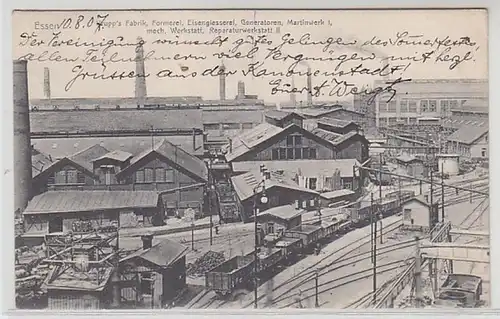 Essen, 10.8.07. Krupp's Fabrik, Formerei, Eisengiesserei, Generatoren, Martinwerk I,
mech. Werkstatt, Reparaturwerkstatt II
Der Vereinigung wünscht gutes Gelingen des Sommerfestes
allen Teilnehmern viel Vergnügen mit herzl.
Grüssen aus der Kanonenstadt